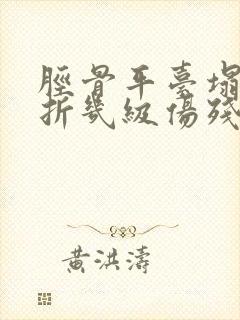 脛骨平臺塌
折幾級傷殘
黃洪濤